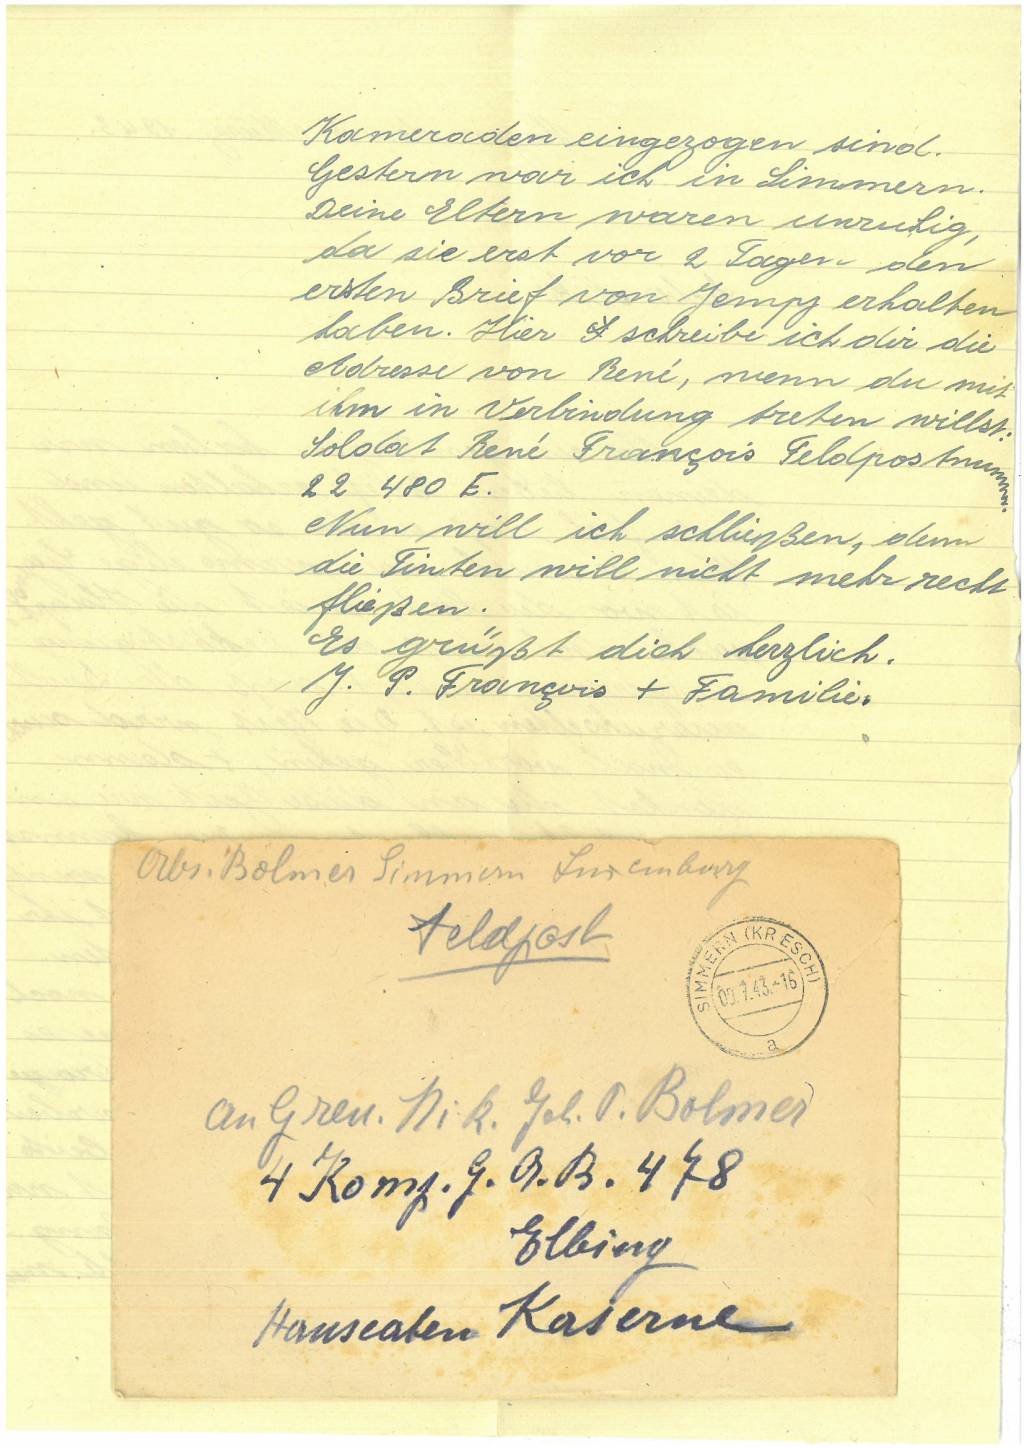 Kameraden eingezogen sind.
Gestern war ich in Simmern.
Deine Eltern waren unruhig,
da sie erst vor 2 Tagen den
ersten Brief von Jempy erhalten
haben. Hier schreibe ich dir die
Adresse von René, wenn du mit
ihm in Verbindung treten willst:
Soldat René François Feldpostnumm.
22 480 E.
Nun will ich schließen, denn
die Tinten will nicht mehr recht
fließen.
Es grüßt dich herzlich.
J. P. François + Familie.
Abs. Bolmer Simmern Luxemburg
Feldpost
SIMMERN (KR ESCH)
43.-16
a
An Gren. Nik. Joh. P. Bolmer
4 Komp. G. A. B. 478
Elbing
Hanseaten Kaserne